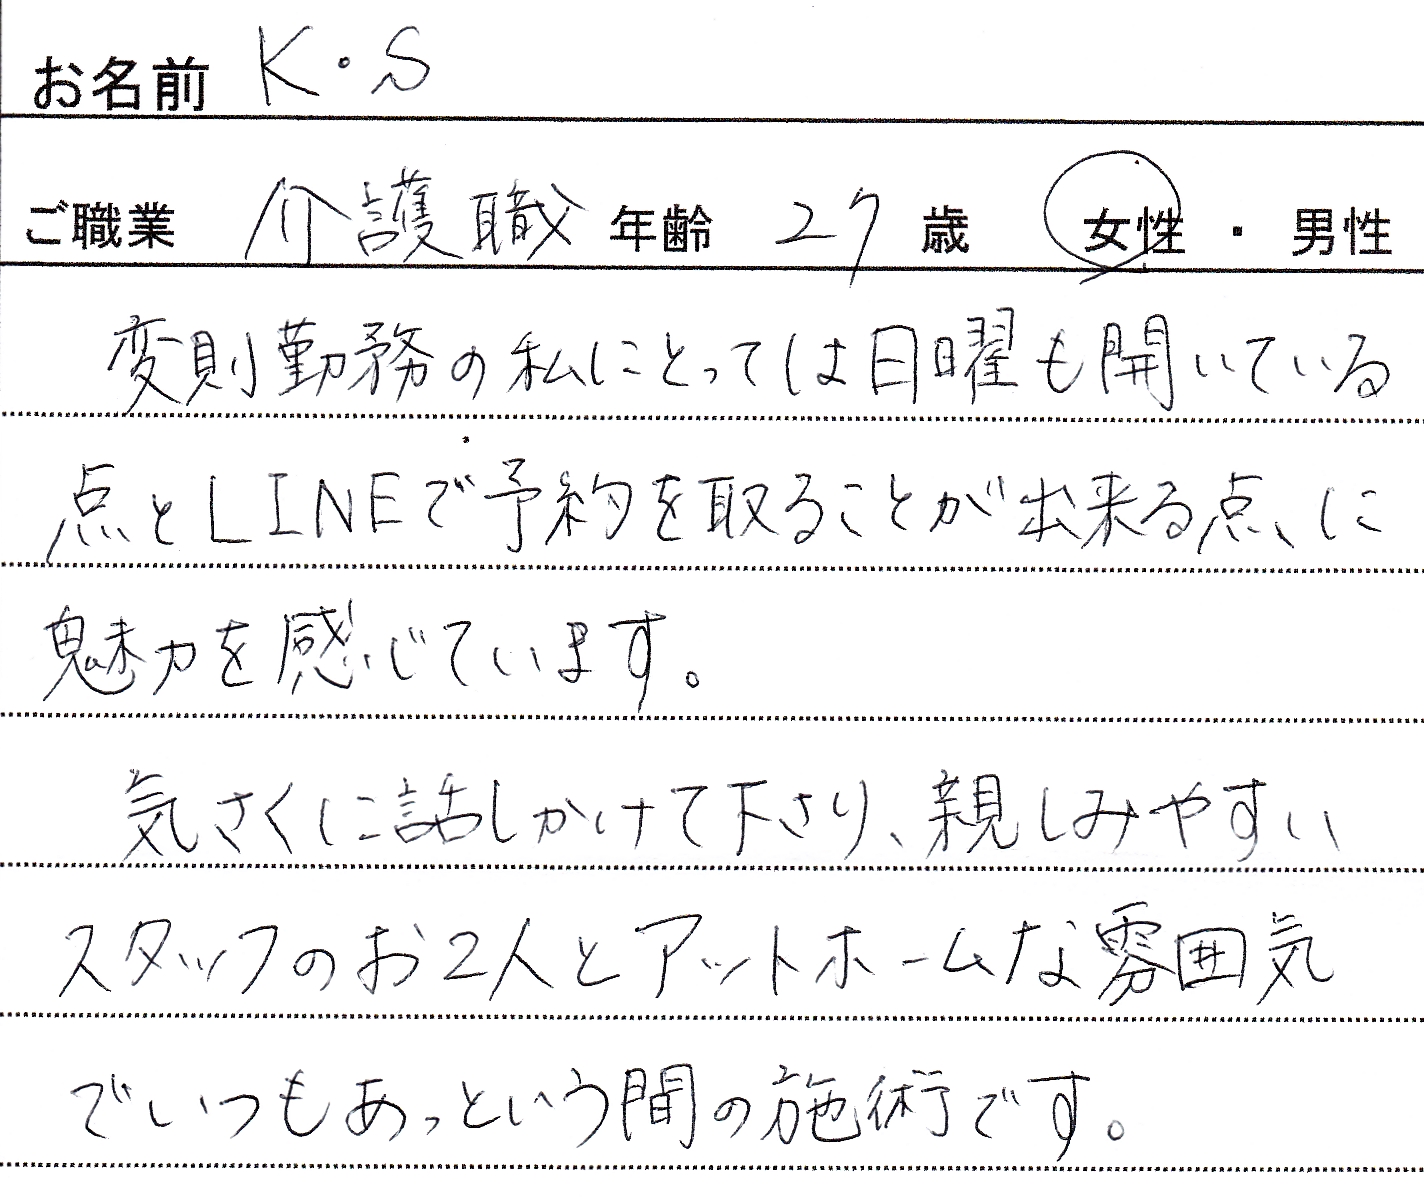 お名前 K・S
ご職業 介護職 年齢 27 歳 女性 ・ 男性
変則勤務の私にとっては日曜も開いている
点とLINEで予約を取ることが出来る点、に
魅力を感じています。
気さくに話しかけて下さり、親しみやすい
スタッフのお2人とアットホームな雰囲気
でいつもあっという間の施術です。